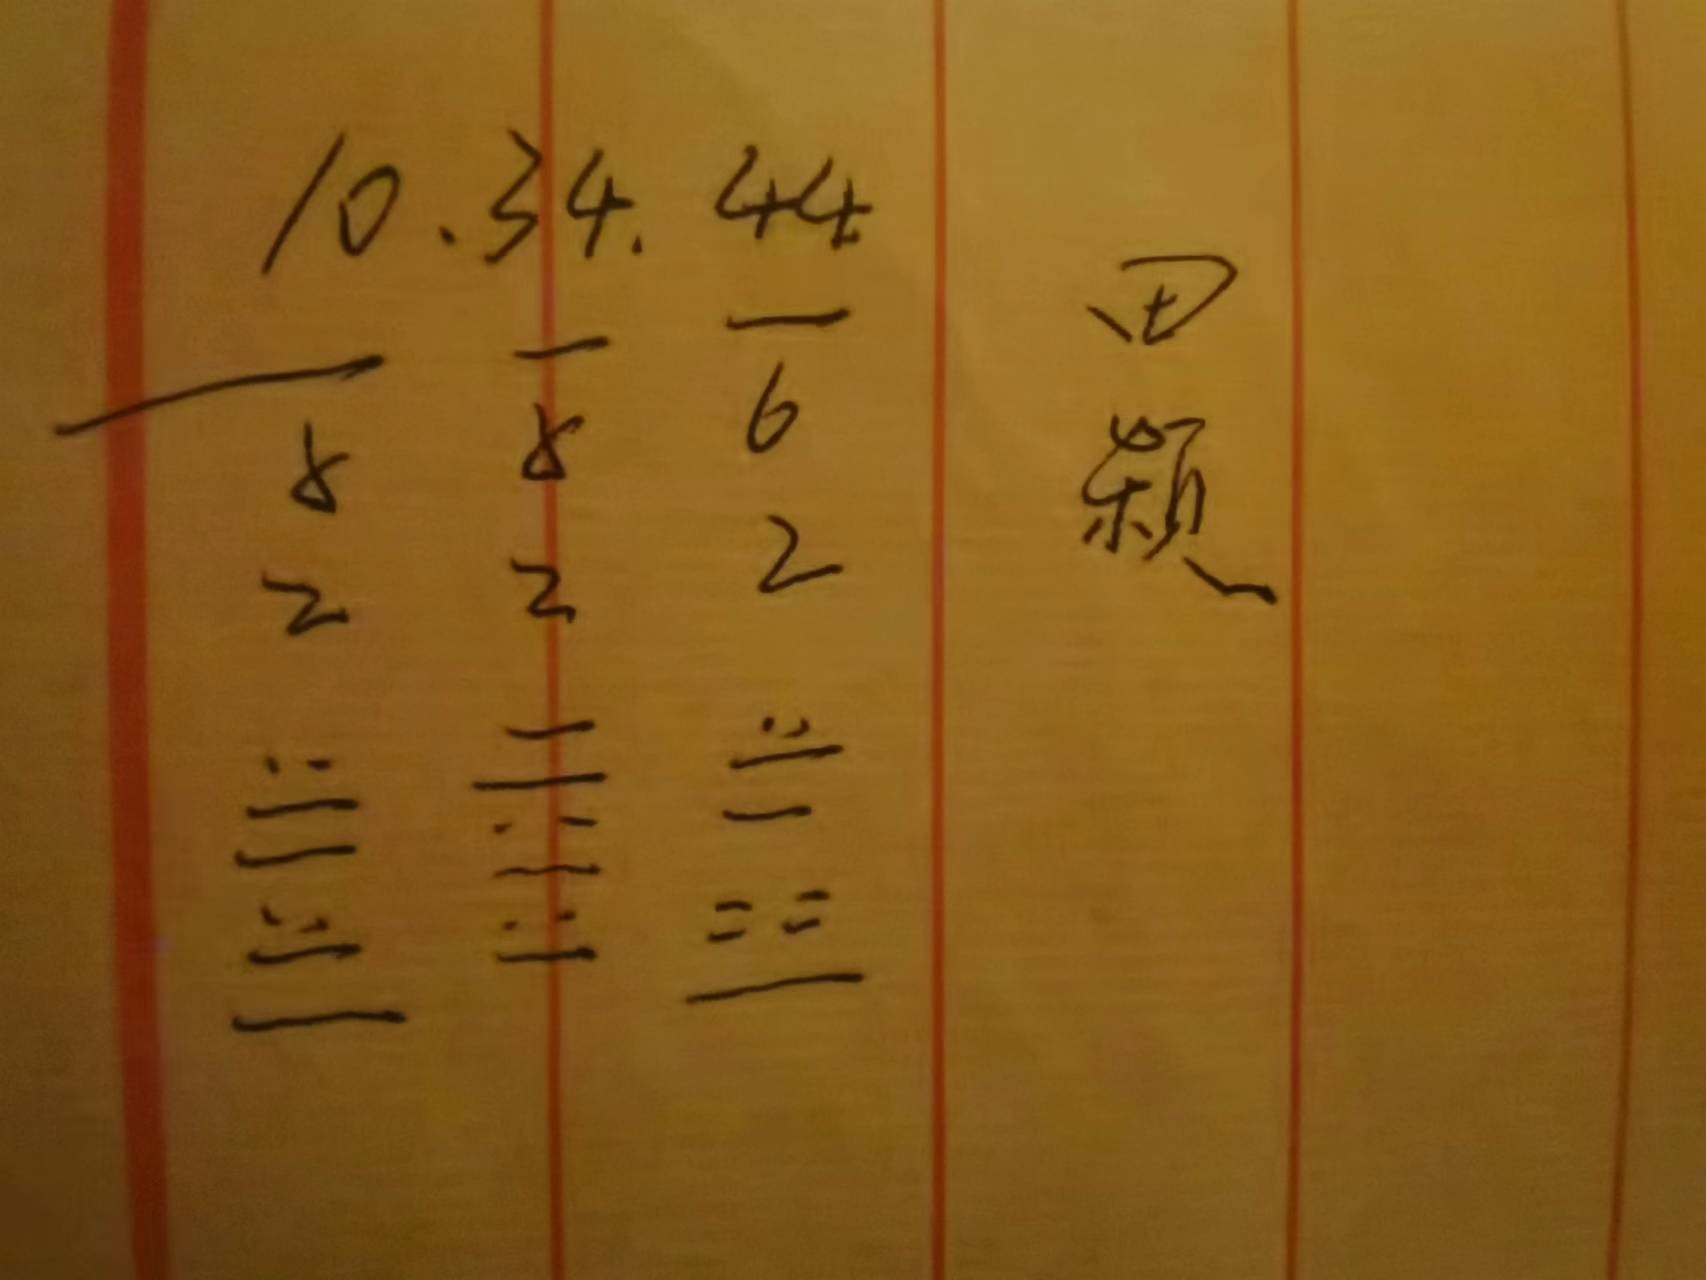 10.34.44
8 8 6
2 2 2
田
颖